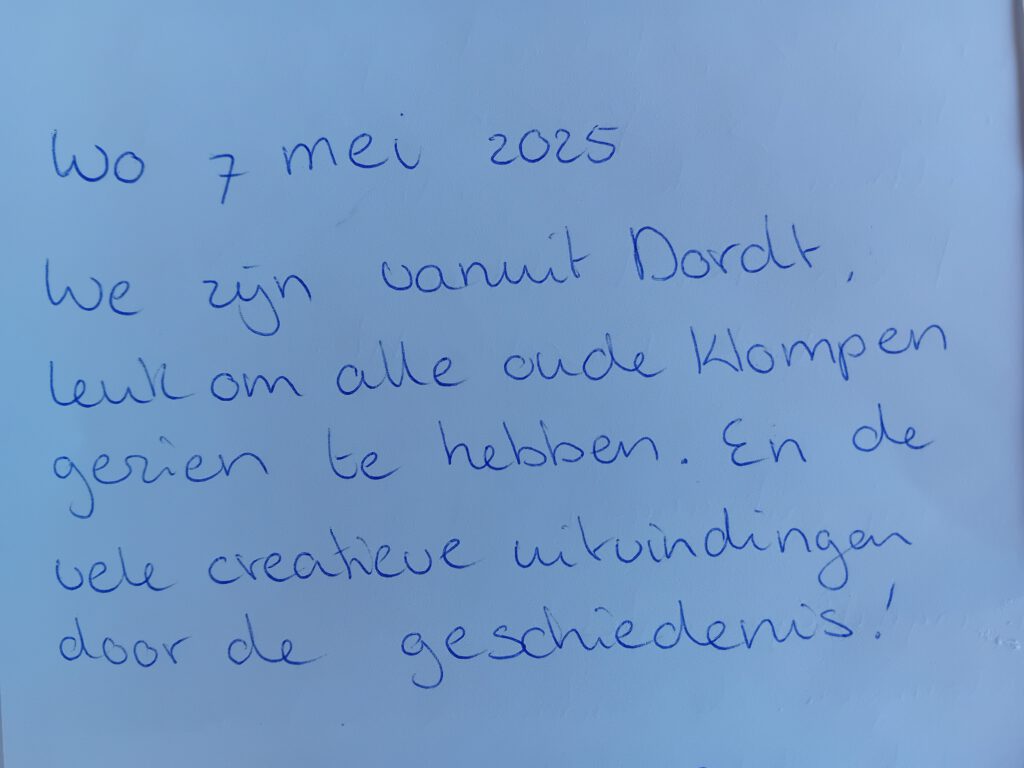 Wo 7 mei 2025
We zijn vanuit Dordt,
leuk om alle oude klompen
gezien te hebben. En de
vele creatieve uitvindingen
door de geschiedenis!